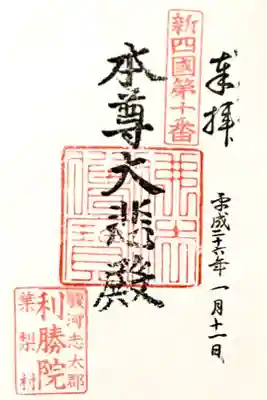 奉拝
平成二十六年 一月十一日
新四國第十番
本尊大悲殿
佛法僧寶
駿河志太郡
利勝院
葉梨村